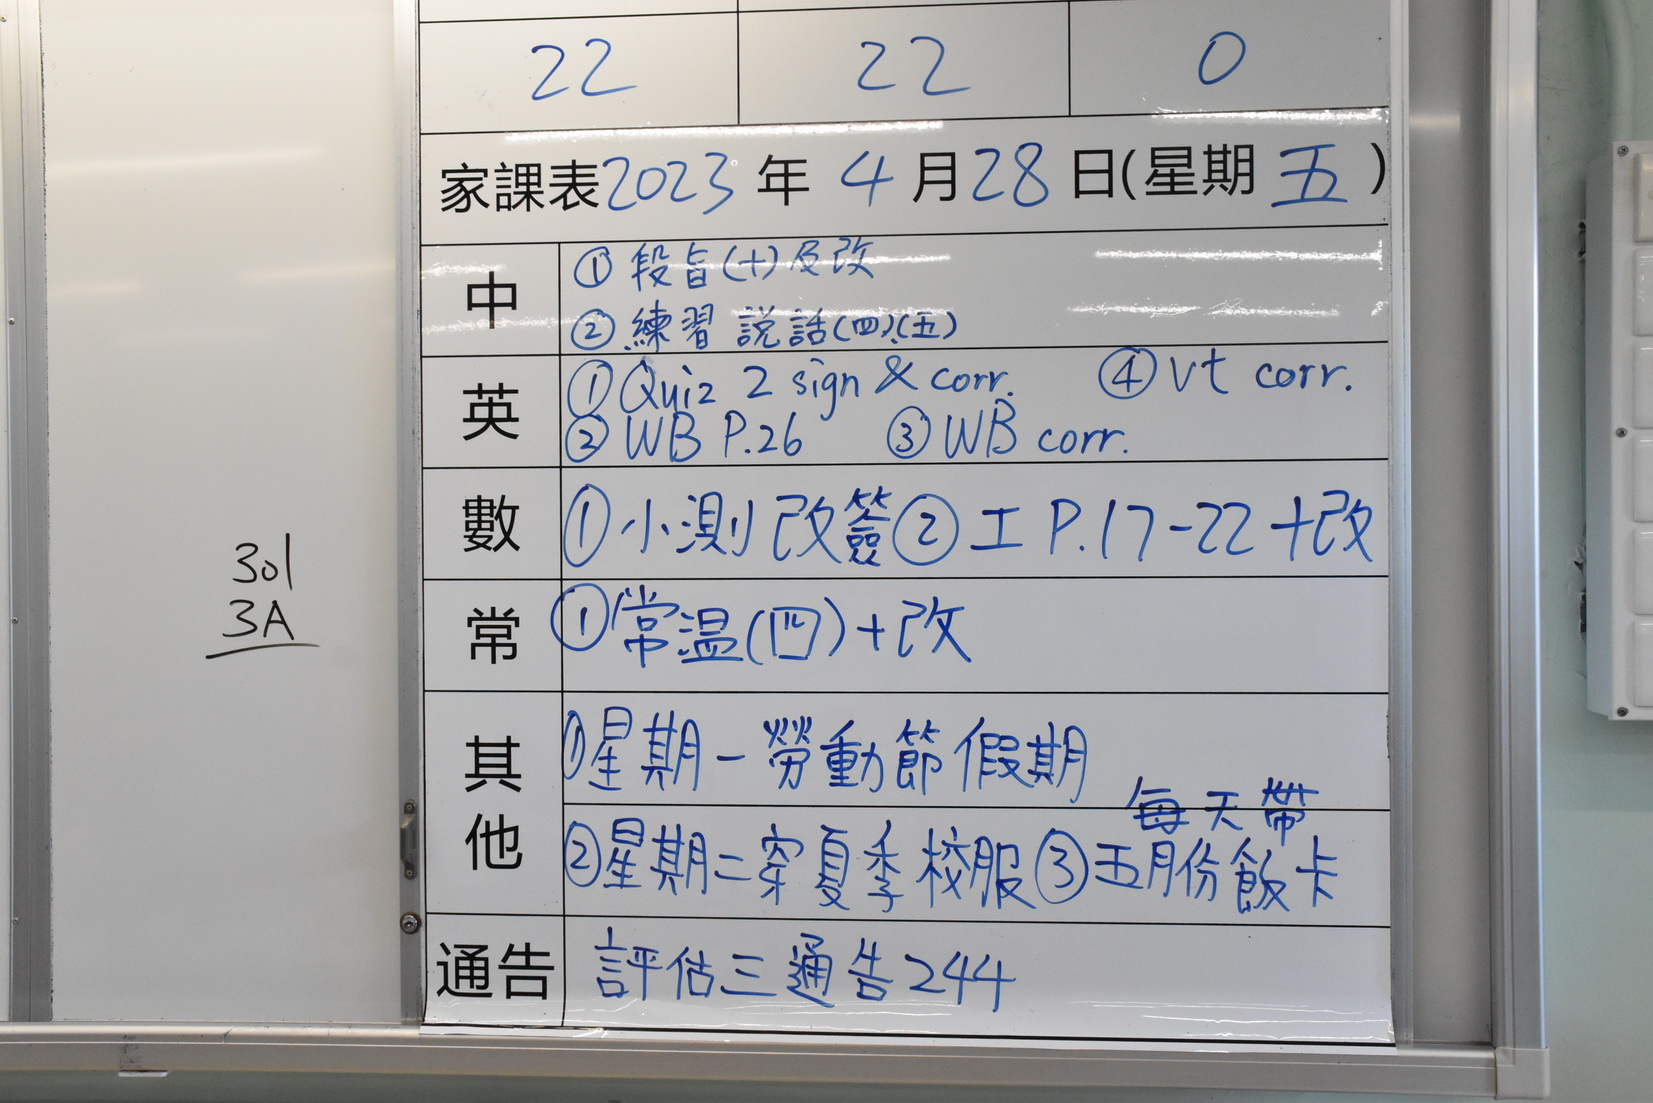 22 22 0
家課表2023年4月28日(星期五)
中
① 段旨(十)及改
② 練習 説話(四)(五)
英
① Quiz 2 sign & corr. ④ vt corr.
② WB P.26 ③ WB corr.
數
① 小測改簽 ② 工 P.17-22+改
常
① 常温(四)+改
其他
① 星期一勞動節假期
每天帶
② 星期二穿夏季校服 ③ 五月份飯卡
通告
評估三通告244
301
3A